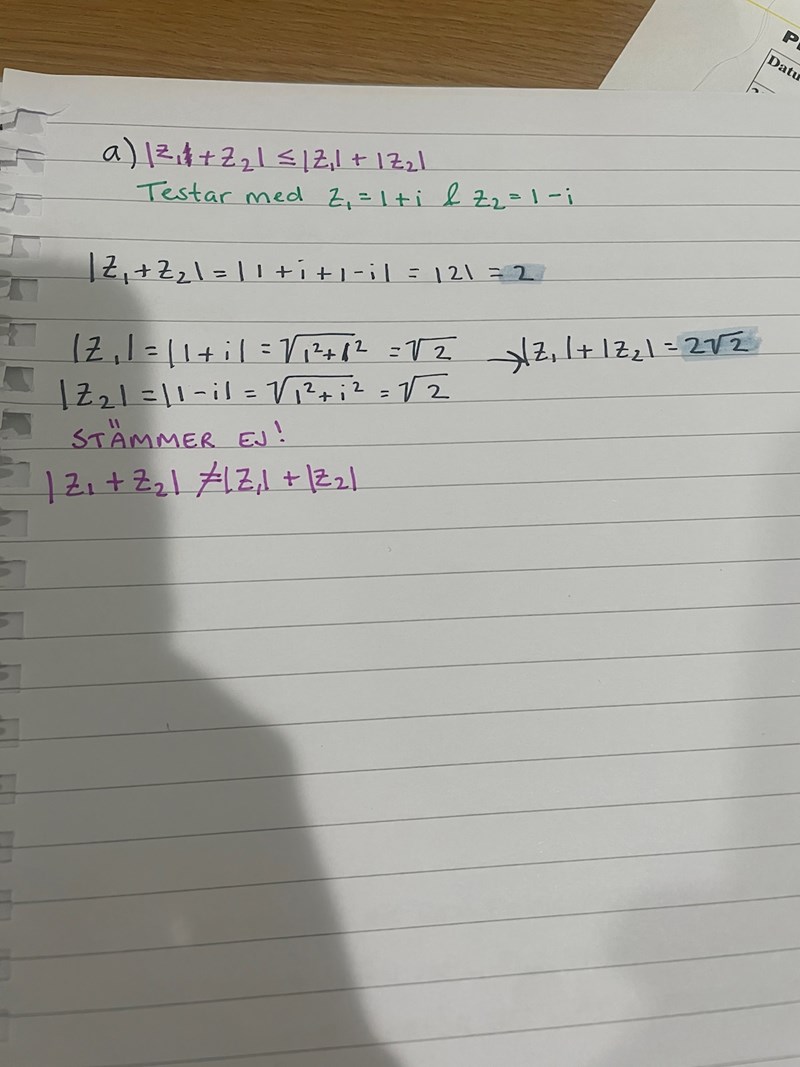 P
Datu
a) |z₁ + z₂| ≤ |z₁| + |z₂|
Testar med z₁ = 1+i & z₂ = 1-i
|z₁ + z₂| = |1 + i + 1 - i| = |2| = 2
|z₁| = |1 + i| = √1² + 1² = √2 → |z₁| + |z₂| = 2√2
|z₂| = |1 - i| = √1² + i² = √2
STÄMMER EJ!
|z₁ + z₂| ≠ |z₁| + |z₂|